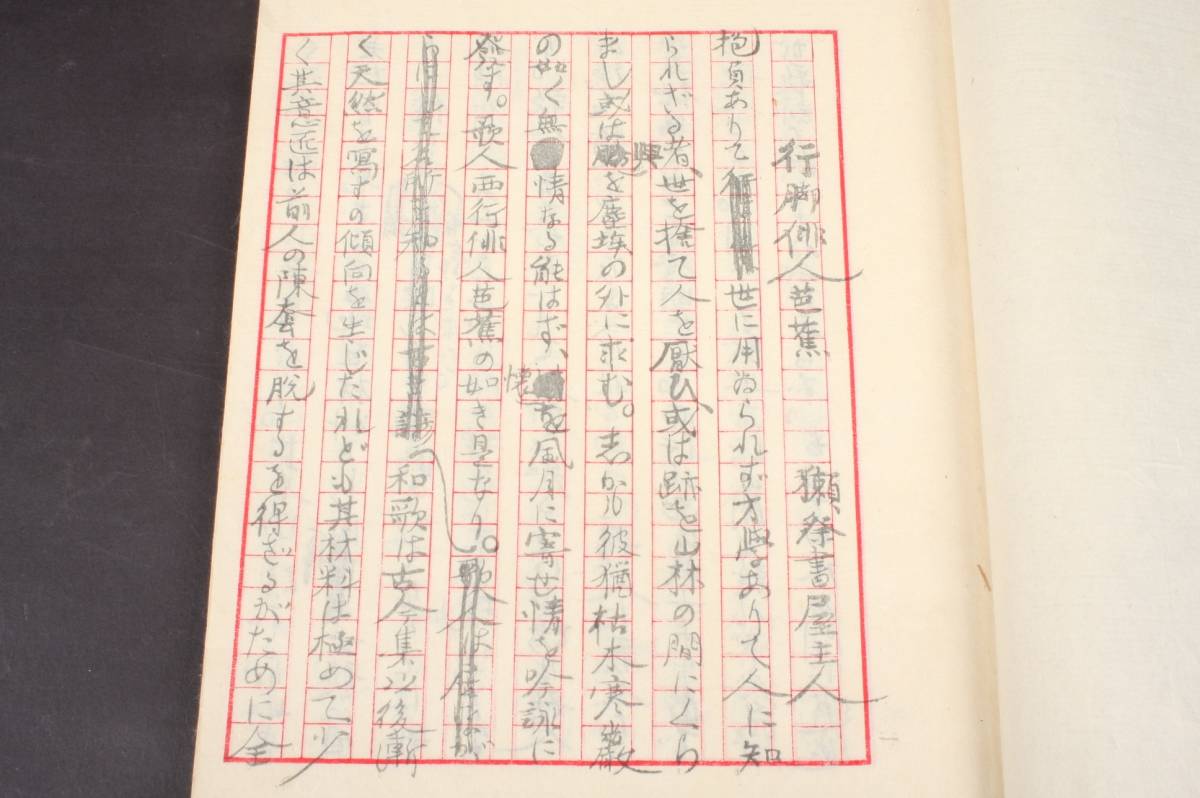 行脚俳人芭蕉 獺祭書屋主人
抱負ありて世に用ゐられず才学ありて人に知
られざる者、世を捨て人を厭ひ、或は跡を山林の間にくら
まし或は興を塵埃の外に求む。志かも彼猶枯木寒巌
の如く無情なる能はず、懐を風月に寄せ世情を吟詠に
発す。歌人西行俳人芭蕉の如き是なり。
和歌は古今集以後漸
く天然を写すの傾向を生じたれども其材料は極めて少
く其意匠は前人の陳套を脱するを得ざるがために全